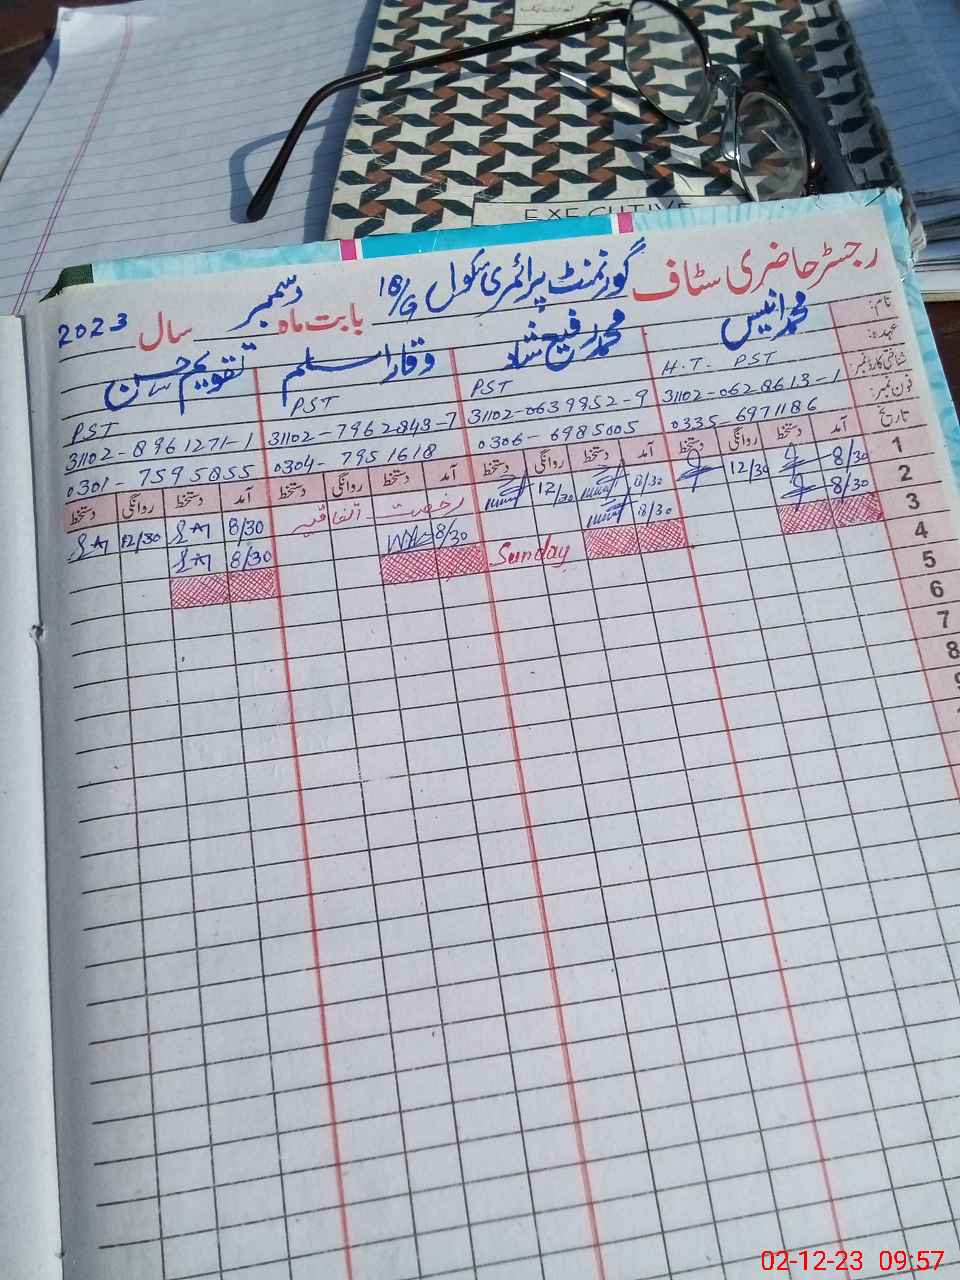 EXECUTIVE
رجسٹر حاضری سٹاف گورنمنٹ پرائمری سکول 18/G بابت ماہ دسمبر سال 2023
نام: محمد انیس محمد رفیع شاد وقار اسلم تقویم حسن
عہدہ: H.T. PST PST PST PST
شناختی کارڈ نمبر: 31102-0628613-1 31102-0639952-9 31102-7962843-7 31102-8961271-1
فون نمبر: 0335-6971186 0306-6985005 0304-7951618 0301-7595855
تاریخ آمد دستخط روانگی دستخط آمد دستخط روانگی دستخط آمد دستخط روانگی دستخط آمد دستخط روانگی دستخط
1 8/30 12/30 8/30 12/30 رخصت اتفاقیہ 8/30 12/30
2 8/30 8/30 8/30 8/30
3 Sunday
4
5
6
7
8
9
02-12-23 09:57